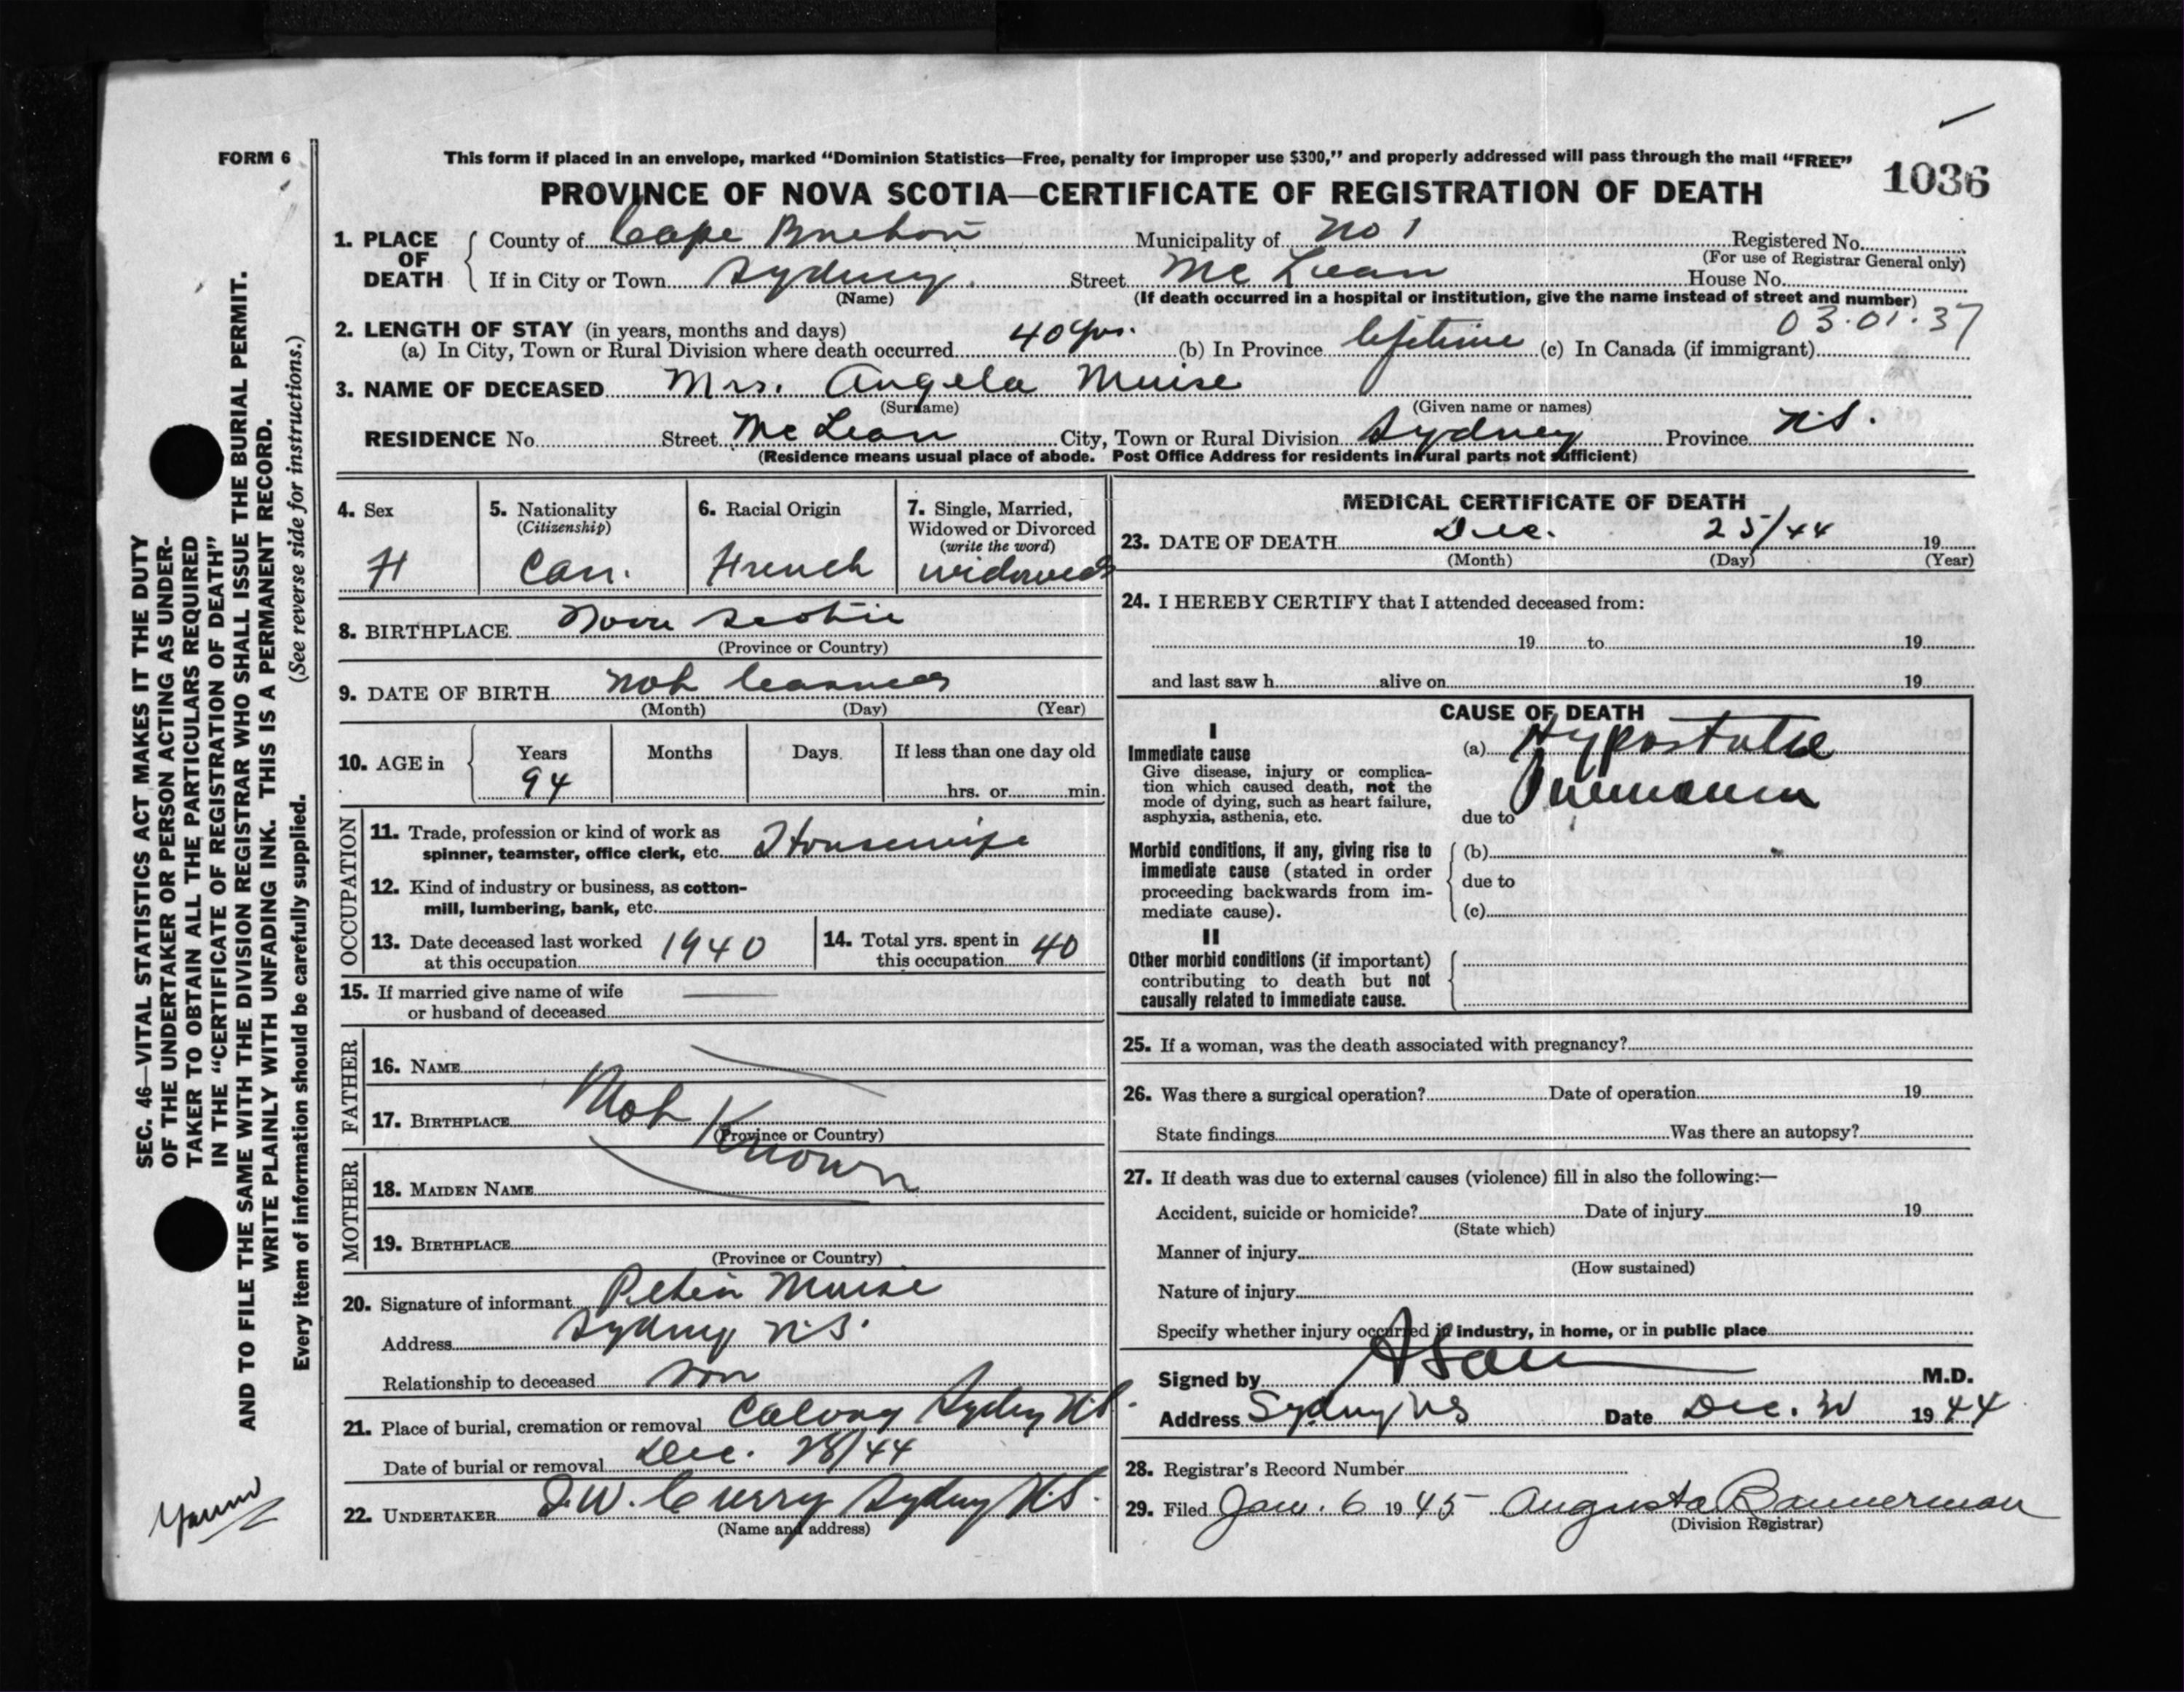 FORM 6
This form if placed in an envelope, marked “Dominion Statistics—Free, penalty for improper use $300,” and properly addressed will pass through the mail “FREE”
1036
PROVINCE OF NOVA SCOTIA—CERTIFICATE OF REGISTRATION OF DEATH
1. PLACE OF DEATH
County of Cape Breton Municipality of No 1 Registered No.
(For use of Registrar General only)
If in City or Town Sydney. Street Mc Lean House No.
(Name) (If death occurred in a hospital or institution, give the name instead of street and number)
03.01.37
2. LENGTH OF STAY (in years, months and days)
(a) In City, Town or Rural Division where death occurred 40 yrs. (b) In Province lifetime (c) In Canada (if immigrant)
3. NAME OF DECEASED Mrs. Angela Muise
(Surname) (Given name or names)
RESIDENCE No. Street Mc Lean City, Town or Rural Division Sydney Province N.S.
(Residence means usual place of abode. Post Office Address for residents in rural parts not sufficient)
4. Sex
F
5. Nationality
(Citizenship)
Can.
6. Racial Origin
French
7. Single, Married,
Widowed or Divorced
(write the word)
widowed
8. BIRTHPLACE Nova Scotia
(Province or Country)
9. DATE OF BIRTH Not learned
(Month) (Day) (Year)
10. AGE in Years Months Days If less than one day old
94 hrs. or min.
OCCUPATION
11. Trade, profession or kind of work as
spinner, teamster, office clerk, etc. Housewife
12. Kind of industry or business, as cotton-
mill, lumbering, bank, etc.
13. Date deceased last worked
at this occupation 1940
14. Total yrs. spent in
this occupation 40
15. If married give name of wife
or husband of deceased
FATHER
16. NAME
17. BIRTHPLACE
(Province or Country)
Not Known
MOTHER
18. MAIDEN NAME
19. BIRTHPLACE
(Province or Country)
20. Signature of informant Muise
Address Sydney N.S.
Relationship to deceased son
21. Place of burial, cremation or removal Calvary Sydney N.S.
Date of burial or removal Dec. 28/44
22. UNDERTAKER Curry Sydney N.S.
(Name and address)
MEDICAL CERTIFICATE OF DEATH
23. DATE OF DEATH Dec. 25/44 19
(Month) (Day) (Year)
24. I HEREBY CERTIFY that I attended deceased from:
19 to 19
and last saw h alive on 19
CAUSE OF DEATH
I
Immediate cause
Give disease, injury or complica-
tion which caused death, not the
mode of dying, such as heart failure,
asphyxia, asthenia, etc.
(a) Hypostatic
Pneumonia
due to
Morbid conditions, if any, giving rise to
immediate cause (stated in order
proceeding backwards from im-
mediate cause).
(b)
due to
(c)
II
Other morbid conditions (if important)
contributing to death but not
causally related to immediate cause.
25. If a woman, was the death associated with pregnancy?
26. Was there a surgical operation? Date of operation 19
State findings Was there an autopsy?
27. If death was due to external causes (violence) fill in also the following:—
Accident, suicide or homicide? Date of injury 19
(State which)
Manner of injury
(How sustained)
Nature of injury
Specify whether injury occurred in industry, in home, or in public place
Signed by M.D.
Address Sydney NS Date Dec. 30 1944
28. Registrar's Record Number
29. Filed Jan. 6 1945 Augusta Bannerman
(Division Registrar)
SEC. 46—VITAL STATISTICS ACT MAKES IT THE DUTY
OF THE UNDERTAKER OR PERSON ACTING AS UNDER-
TAKER TO OBTAIN ALL THE PARTICULARS REQUIRED
IN THE “CERTIFICATE OF REGISTRATION OF DEATH”
AND TO FILE THE SAME WITH THE DIVISION REGISTRAR WHO SHALL ISSUE THE BURIAL PERMIT.
WRITE PLAINLY WITH UNFADING INK. THIS IS A PERMANENT RECORD.
Every item of information should be carefully supplied. (See reverse side for instructions.)